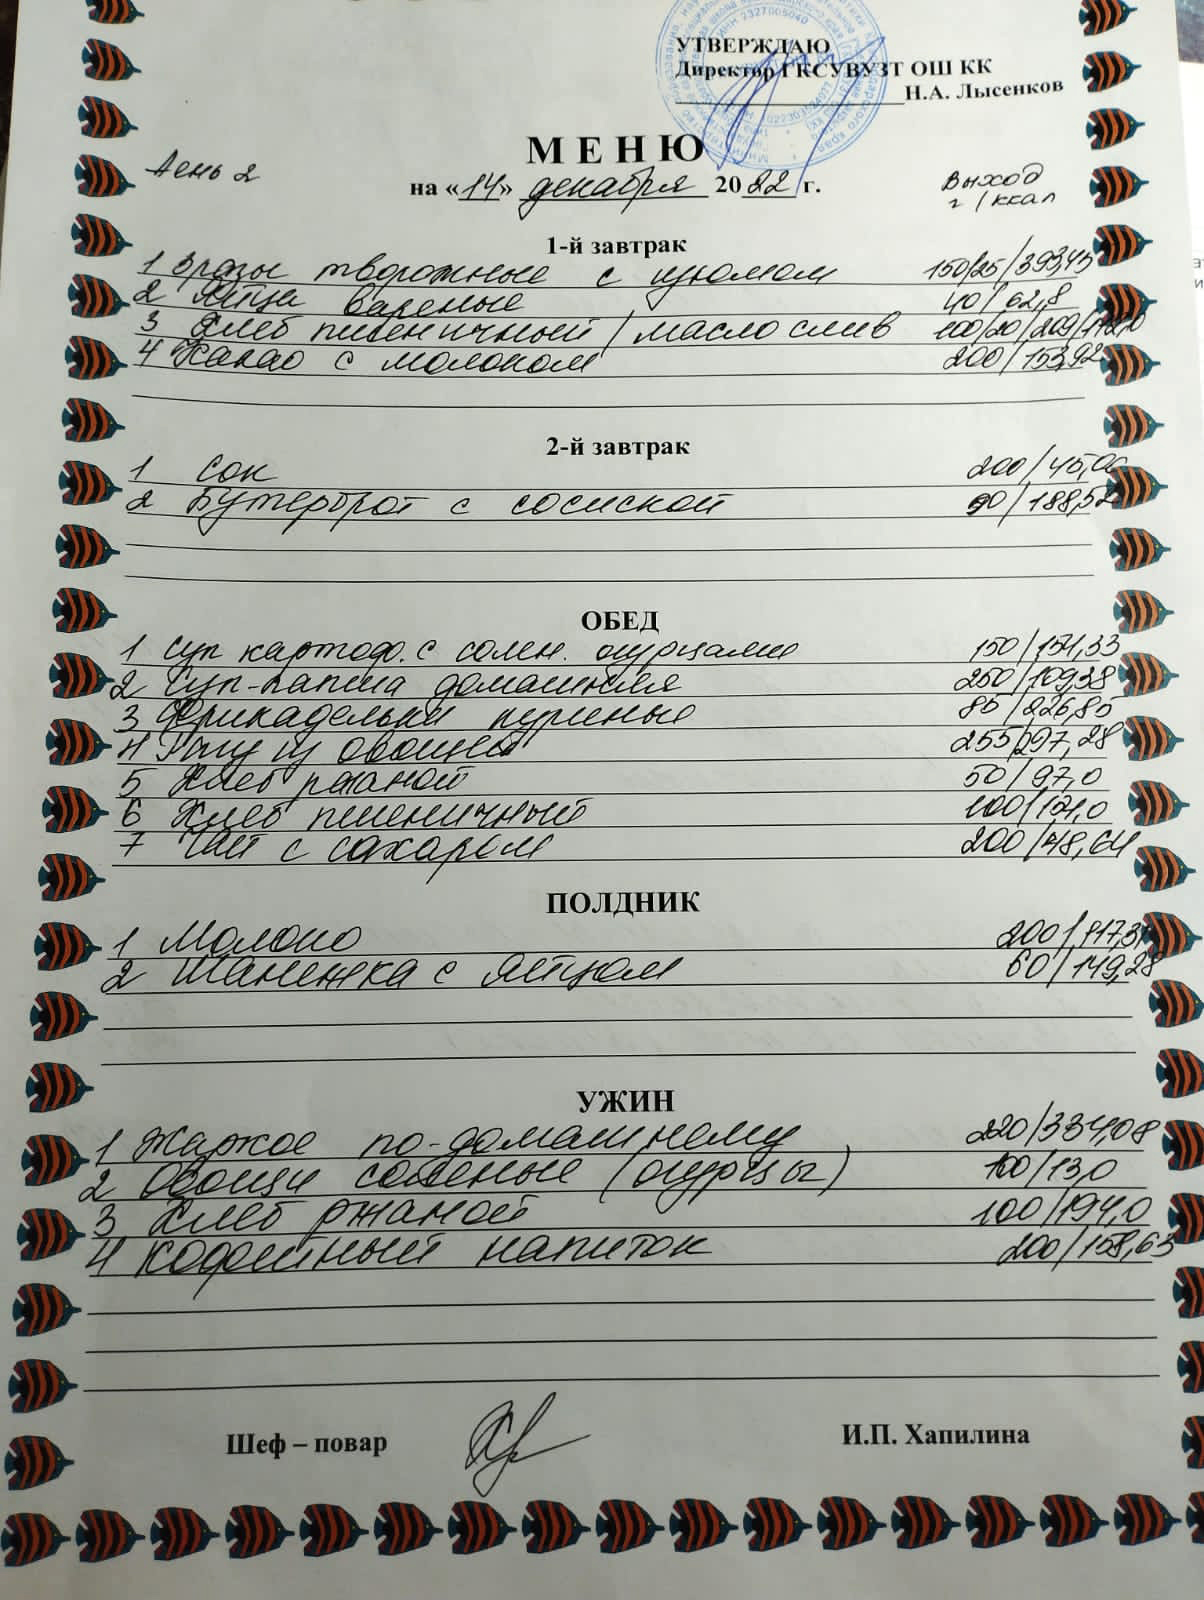 УТВЕРЖДАЮ
Директор ГКСУВУЗТ ОШ КК
Н.А. Лысенков
МЕНЮ
День 2
на «14» декабря 2022 г.
Выход
г / ккал
1-й завтрак
1 Зразы творожные с изюмом 150/25/393,45
2 Яйца вареные 40/62,8
3 Хлеб пшеничный / масло слив 100/20/209/
4 Какао с молоком 200/153,92
2-й завтрак
1 Сок 200/45,06
2 Бутерброт с сосиской 90/188,52
ОБЕД
1 Суп картоф. с солен. огурцами 150/
2 Суп-лапша домашняя 250/109,38
3 Фрикадельки куриные 226,80
4 Рагу из овощей 255/297,28
5 Хлеб ржаной 50/97,0
6 Хлеб пшеничный 100/
7 Чай с сахаром 200/48,64
ПОЛДНИК
1 Молоко 200/
2 Шанежка с яйцом 60/149,28
УЖИН
1 Жаркое по-домашнему 220/334,08
2 Овощи соленые (огурцы) 100/13,0
3 Хлеб ржаной 100/194,0
4 Кофейный напиток 200/158,63
Шеф – повар
И.П. Хапилина